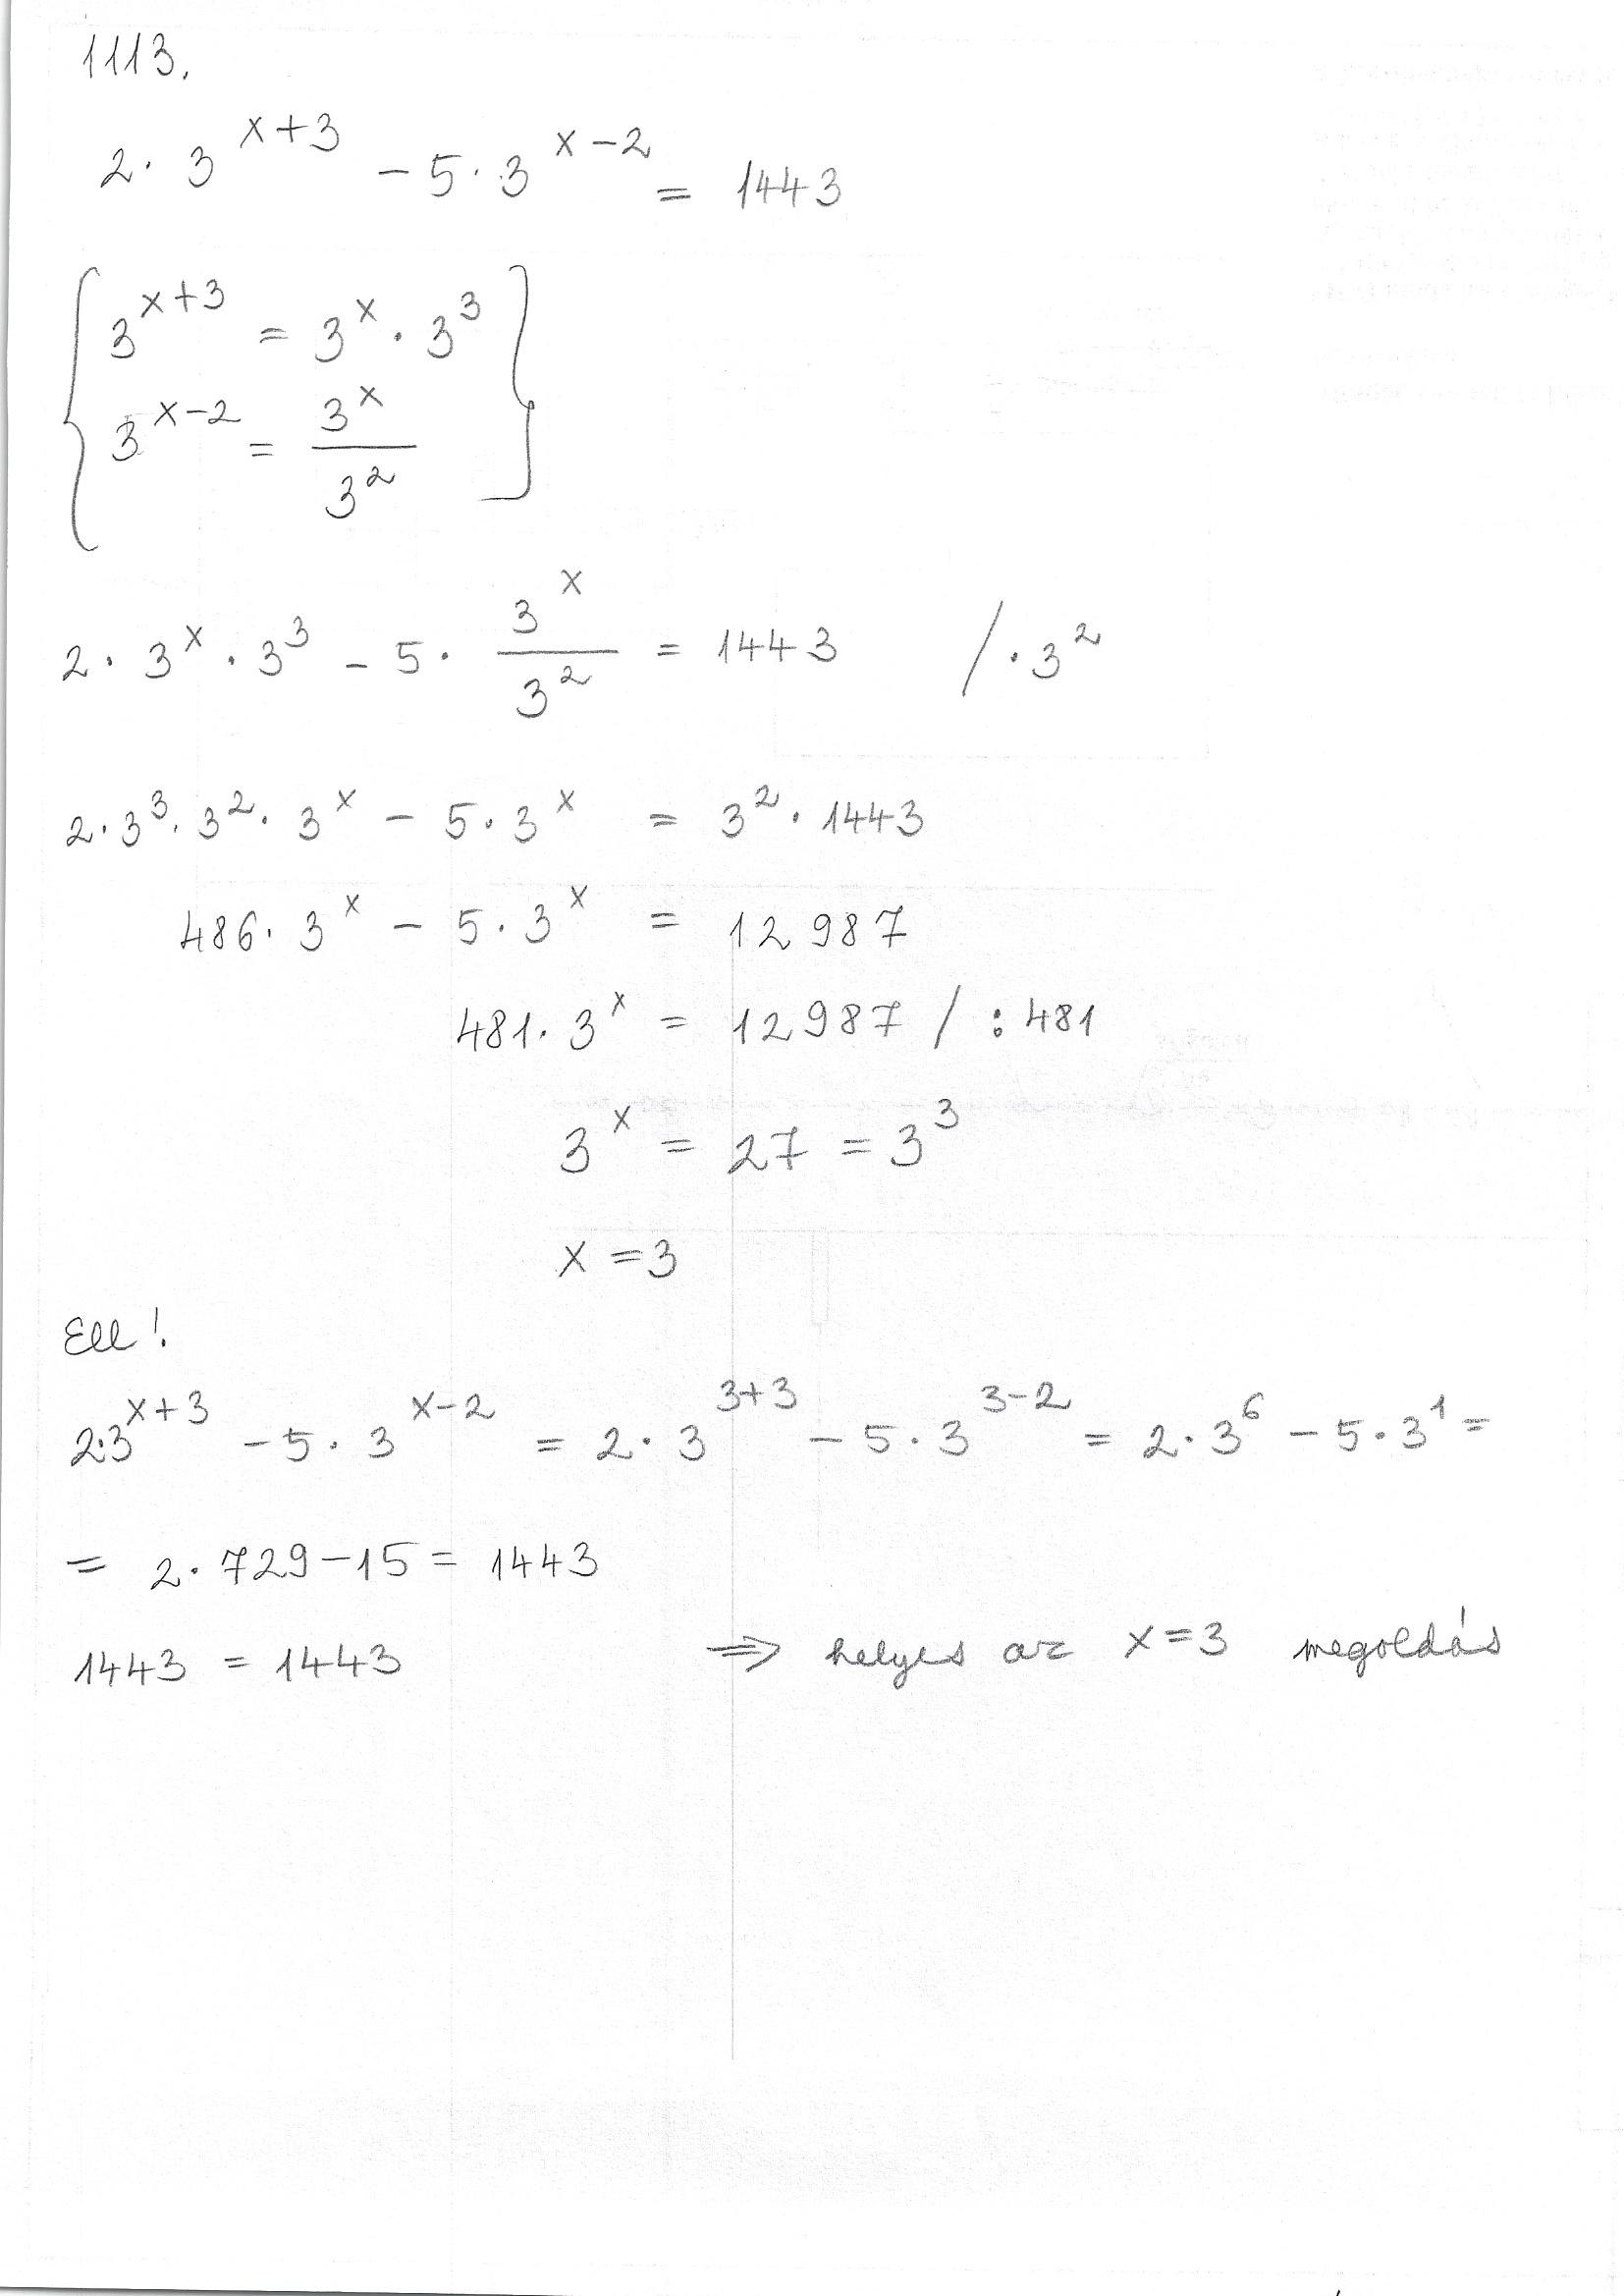 1113.
2 · 3^(x+3) − 5 · 3^(x−2) = 1443
{ 3^(x+3) = 3^x · 3^3 }
3^(x−2) = 3^x / 3^2
2 · 3^x · 3^3 − 5 · 3^x / 3^2 = 1443 / · 3^2
2 · 3^3 · 3^2 · 3^x − 5 · 3^x = 3^2 · 1443
486 · 3^x − 5 · 3^x = 12 987
481 · 3^x = 12987 / : 481
3^x = 27 = 3^3
x = 3
Ell!
2·3^(x+3) − 5 · 3^(x−2) = 2 · 3^(3+3) − 5 · 3^(3−2) = 2 · 3^6 − 5 · 3^1 =
= 2 · 729 − 15 = 1443
1443 = 1443 ⇒ helyes az x = 3 megoldás